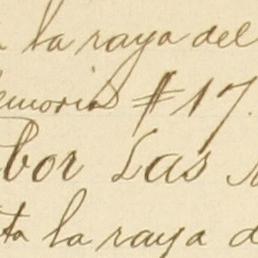 la raya del
Memoria # 17.
bor Las
la raya d